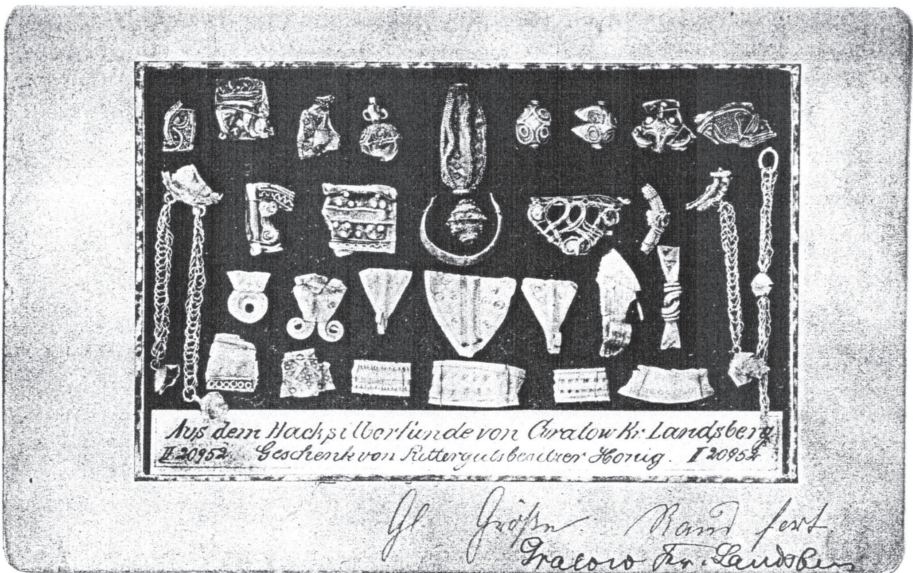 Aus dem Hacksilberfunde von Gralow Kr. Landsberg
II 20952. Geschenk von Rittergutsbesitzer Honig. II 20952
Gl Größe Rand fort
Gralow Kr. Landsberg